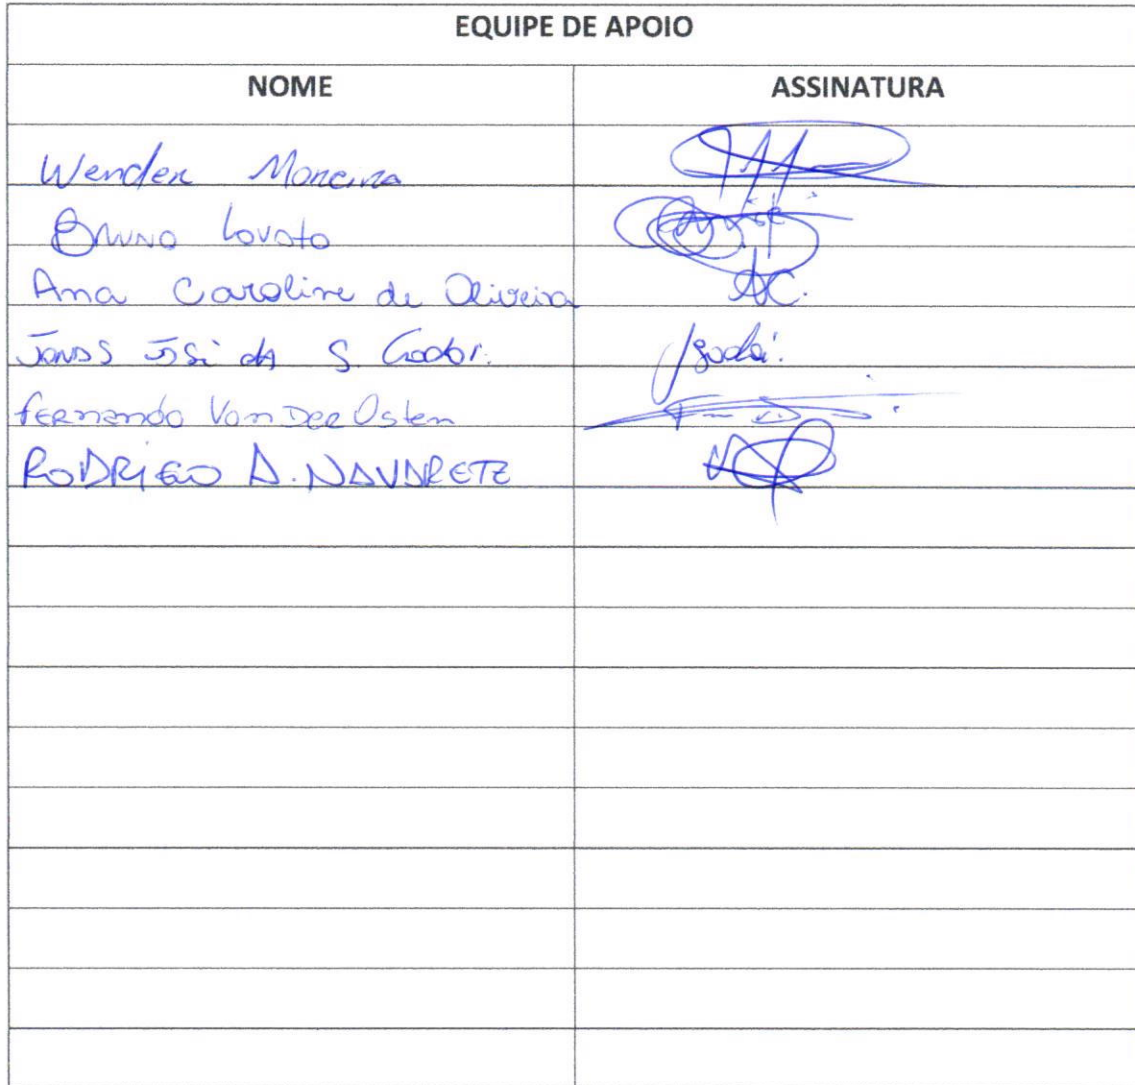 EQUIPE DE APOIO
NOME ASSINATURA
Wender Moreira
Bruno Lovato
Ana Caroline de Oliveira AC.
José da S.
Fernando Von Der Osten
RODRIGO A. NAVARETE